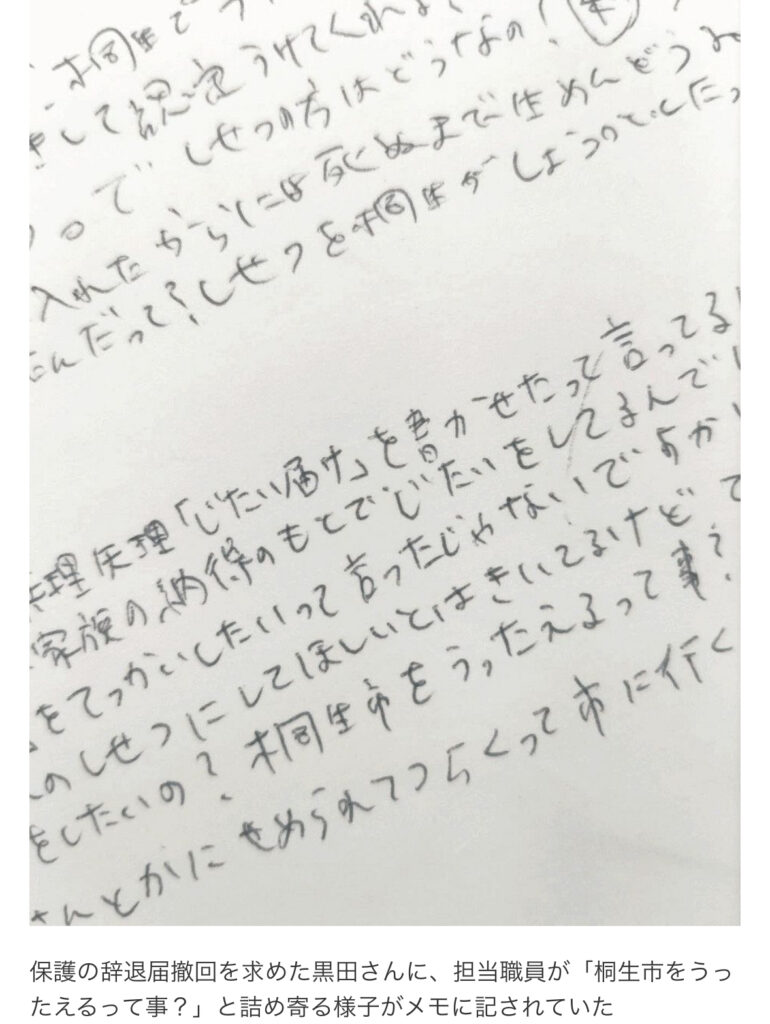 桐生でう
して認定うけてくれ
って しせつの方はどうなの!
入れたからには死ぬまで生めんどうみ
んだって?しせつを桐生がしようのどした
理矢理「じたい届け」を書かせたって言ってる
家族の納得のもとでじたいをしてるんで
をてっかいしたいって言ったじゃないですか
のしせつにしてほしいとはきいてるけど
をしたいの?桐生市をうったえるって事?
さんとかにせめられてつらくって市に行く
保護の辞退届撤回を求めた黒田さんに、担当職員が「桐生市をうっ
たえるって事?」と詰め寄る様子がメモに記されていた